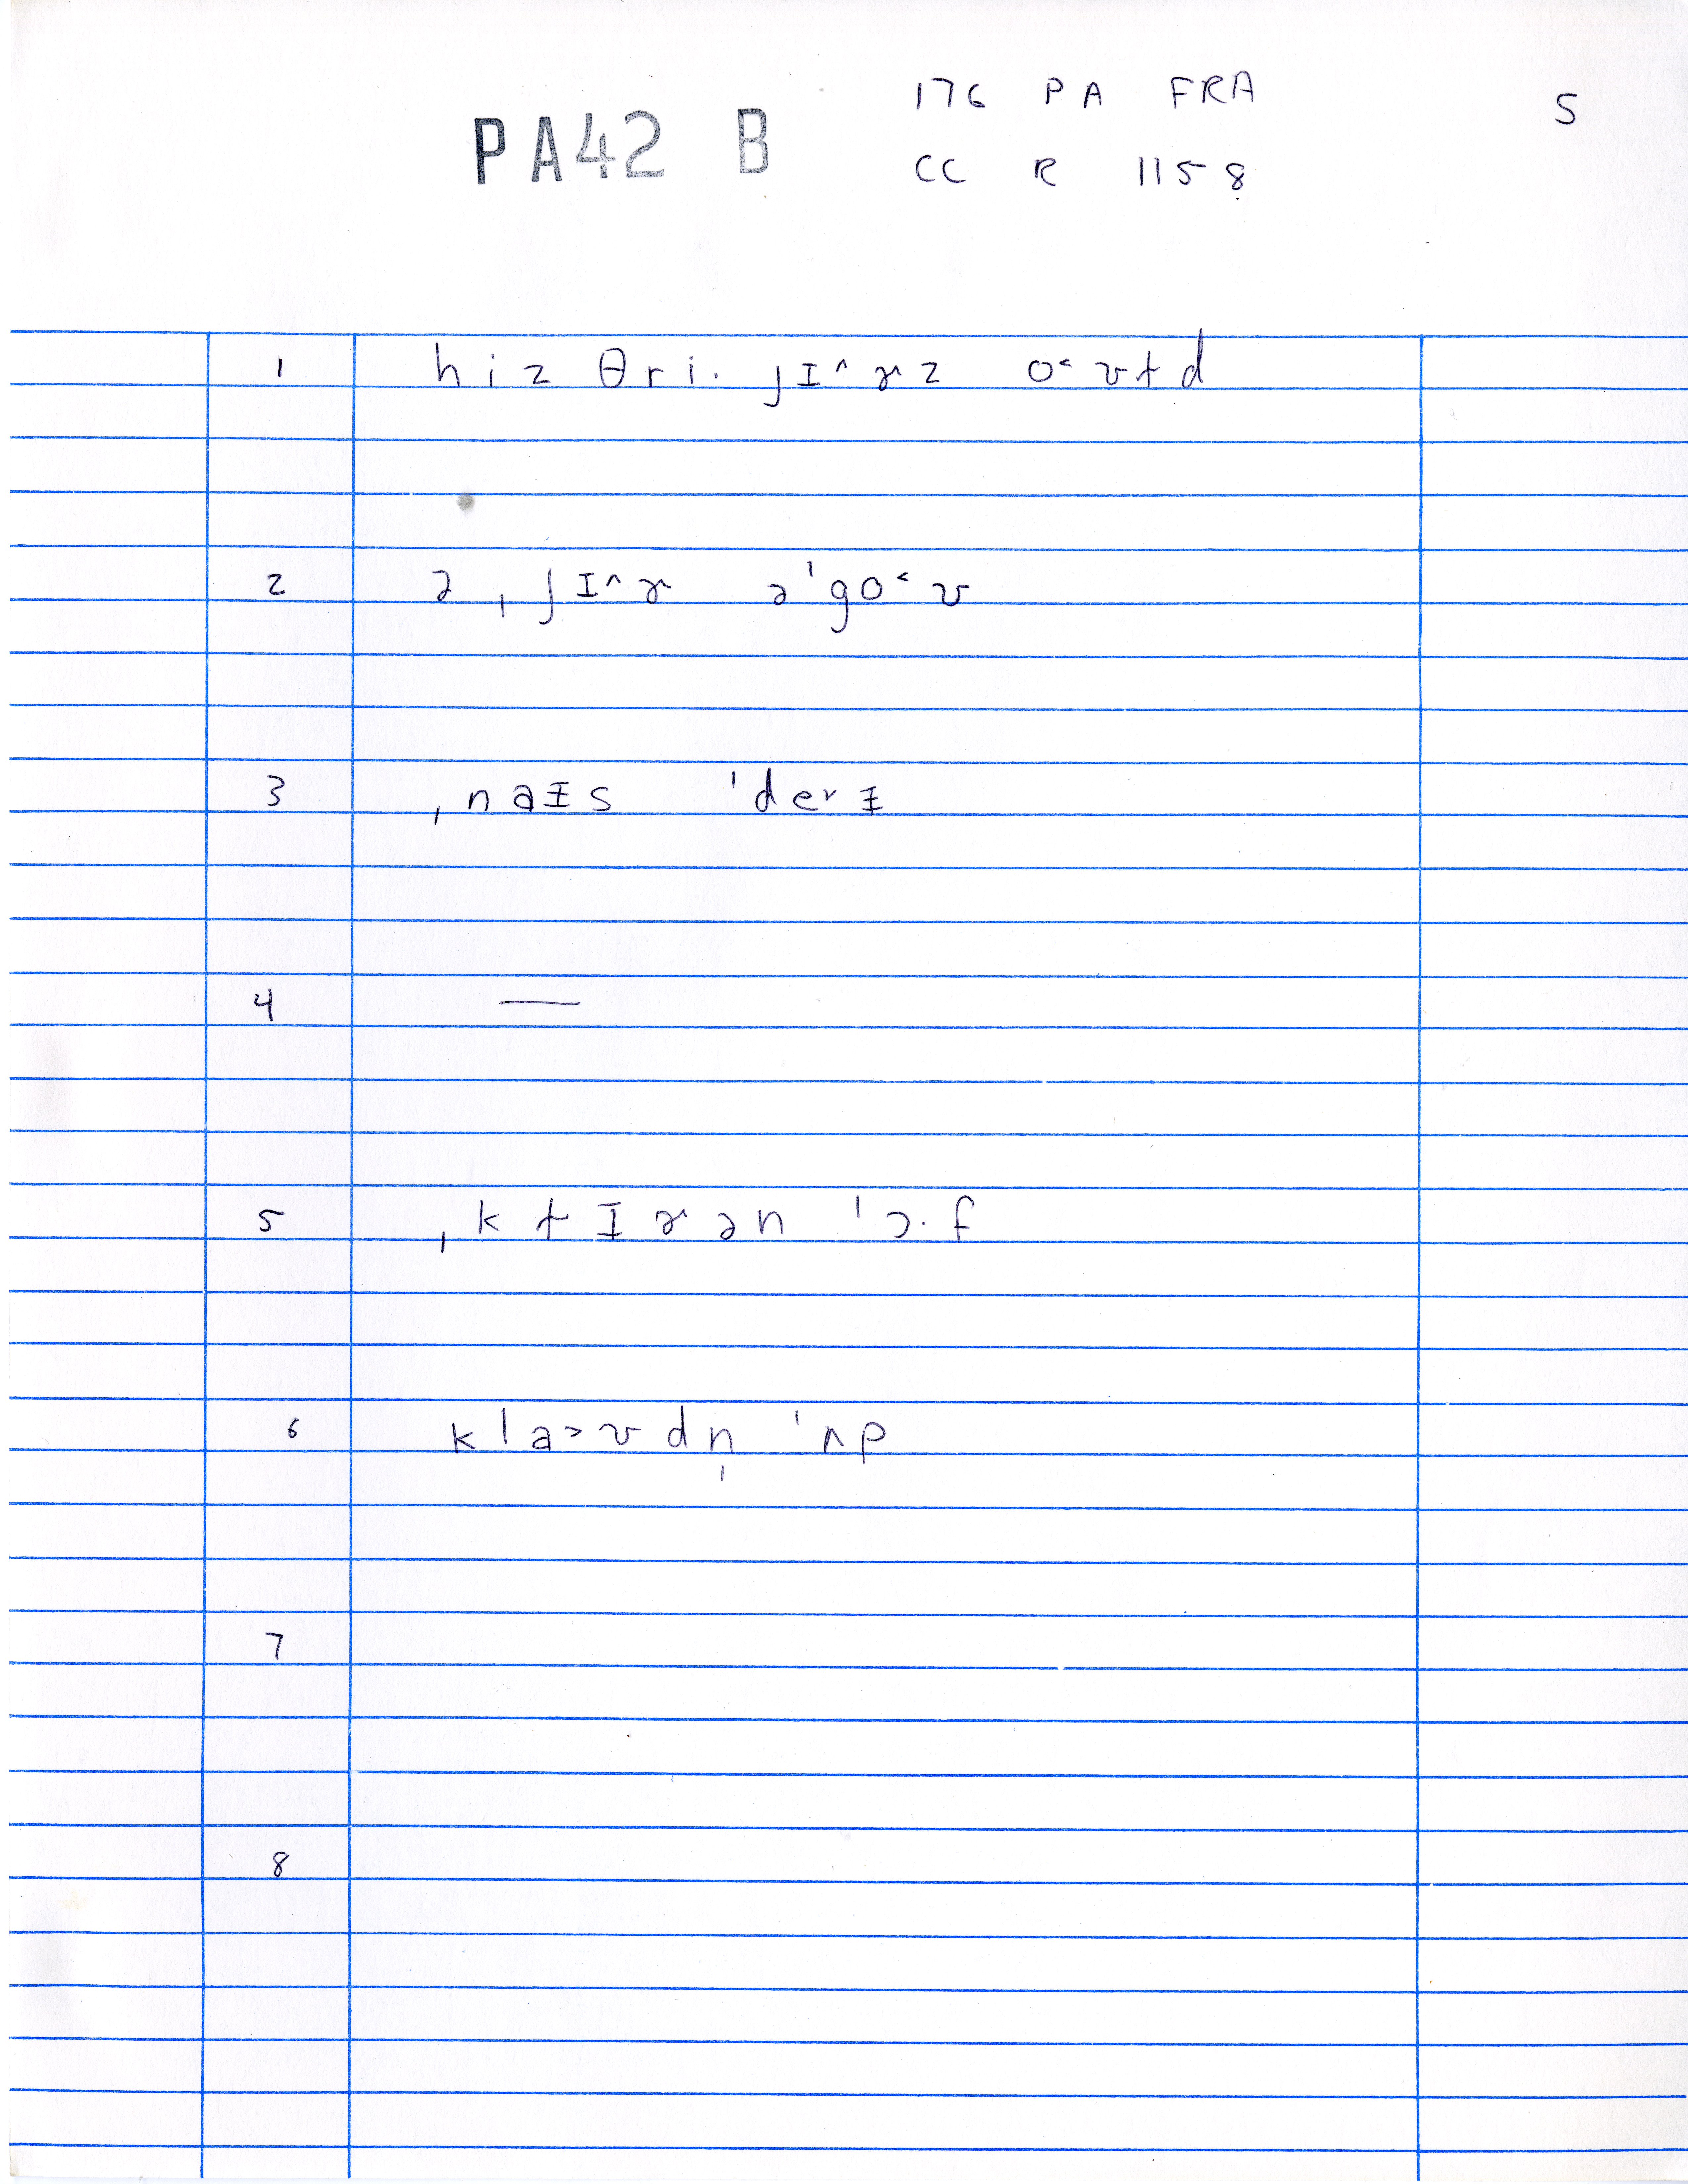 PA42 B
176 PA FRA
CC R 1158
5
1 hiz θri. ʃɪ^ɚz o˂ʊɫd
2 ə ˌʃɪ^ɚ ə'go˂ʊ
3 ˌnaɪs 'deɪɪ
4 —
5 ˌkɫɪɚən 'ɔ.f
6 kla˃ʊdn̩ 'ʌp
7
8